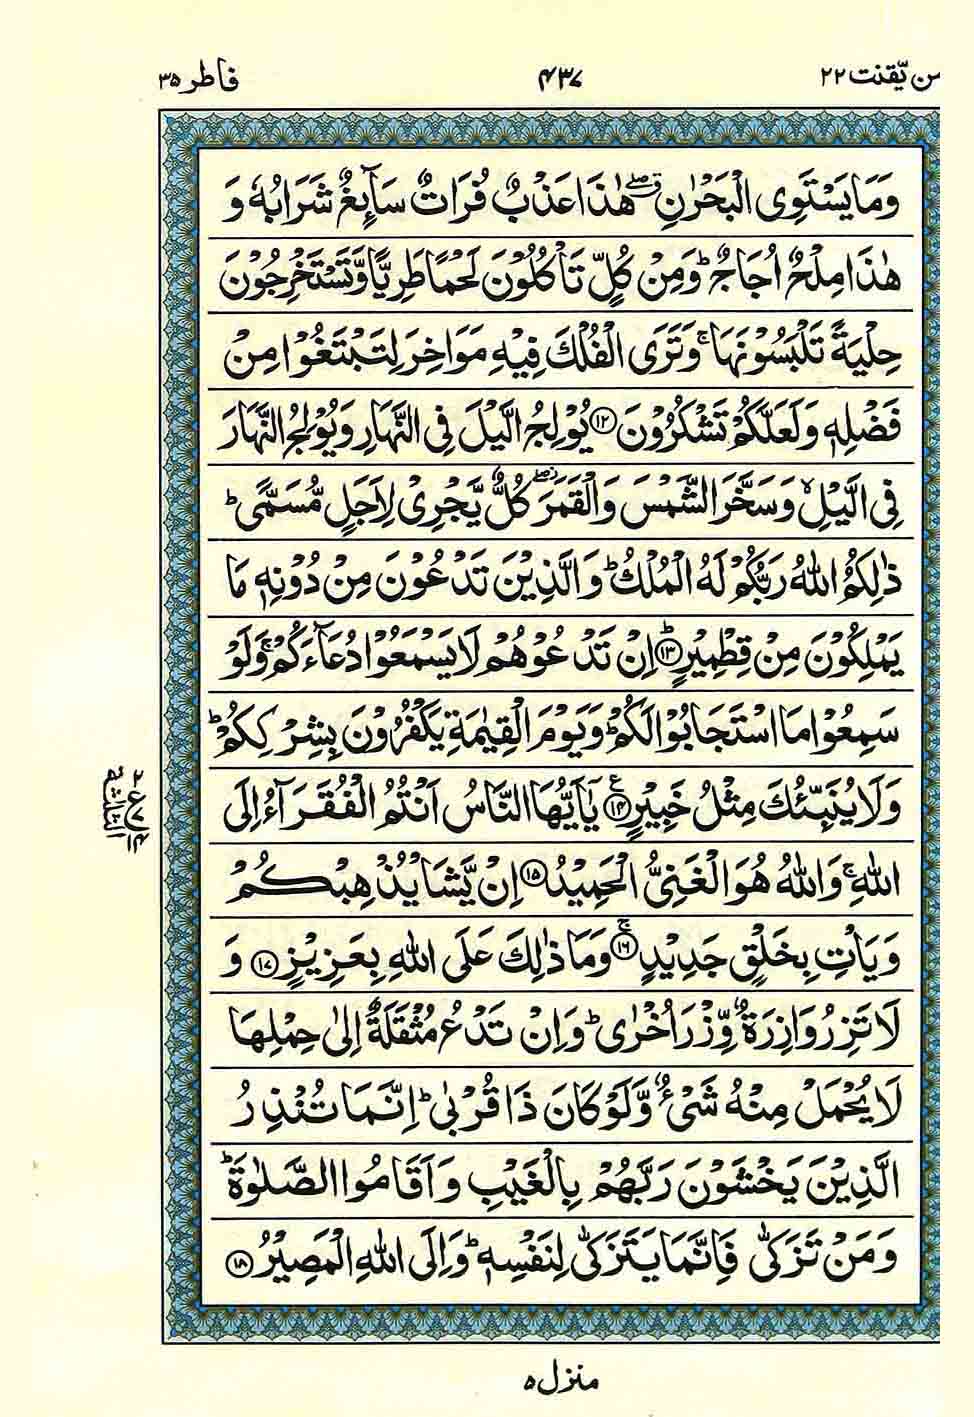 من يّقنت ٢٢
٤٣٧
فاطر ٣٥
وَمَا يَسْتَوِى الْبَحْرٰنِ ۖۗ هٰذَا عَذْبٌ فُرَاتٌ سَآئِغٌ شَرَابُهٗ وَ
هٰذَا مِلْحٌ اُجَاجٌ ؕ وَمِنْ كُلٍّ تَاْكُلُوْنَ لَحْمًا طَرِيًّا وَّتَسْتَخْرِجُوْنَ
حِلْيَةً تَلْبَسُوْنَهَا ۚ وَتَرَى الْفُلْكَ فِيْهِ مَوَاخِرَ لِتَبْتَغُوْا مِنْ
فَضْلِهٖ وَلَعَلَّكُمْ تَشْكُرُوْنَ ﴿١٢﴾ يُوْلِجُ الَّيْلَ فِى النَّهَارِ وَيُوْلِجُ النَّهَارَ
فِى الَّيْلِ ۙ وَسَخَّرَ الشَّمْسَ وَالْقَمَرَ ۖ٘ كُلٌّ يَّجْرِىْ لِاَجَلٍ مُّسَمًّى ؕ
ذٰلِكُمُ اللّٰهُ رَبُّكُمْ لَهُ الْمُلْكُ ؕ وَالَّذِيْنَ تَدْعُوْنَ مِنْ دُوْنِهٖ مَا
يَمْلِكُوْنَ مِنْ قِطْمِيْرٍ ؕ﴿١٣﴾ اِنْ تَدْعُوْهُمْ لَا يَسْمَعُوْا دُعَآءَكُمْ ۚ وَلَوْ
سَمِعُوْا مَا اسْتَجَابُوْا لَكُمْ ؕ وَيَوْمَ الْقِيٰمَةِ يَكْفُرُوْنَ بِشِرْكِكُمْ ؕ
وَلَا يُنَبِّئُكَ مِثْلُ خَبِيْرٍ ﴿١٤﴾ ع يٰۤاَيُّهَا النَّاسُ اَنْتُمُ الْفُقَرَآءُ اِلَى
اللّٰهِ ۚ وَاللّٰهُ هُوَ الْغَنِىُّ الْحَمِيْدُ ﴿١٥﴾ اِنْ يَّشَاْ يُذْهِبْكُمْ
وَيَاْتِ بِخَلْقٍ جَدِيْدٍ ۚ﴿١٦﴾ وَمَا ذٰلِكَ عَلَى اللّٰهِ بِعَزِيْزٍ ﴿١٧﴾ وَ
لَا تَزِرُ وَازِرَةٌ وِّزْرَ اُخْرٰى ؕ وَاِنْ تَدْعُ مُثْقَلَةٌ اِلٰى حِمْلِهَا
لَا يُحْمَلْ مِنْهُ شَىْءٌ وَّلَوْ كَانَ ذَا قُرْبٰى ؕ اِنَّمَا تُنْذِرُ
الَّذِيْنَ يَخْشَوْنَ رَبَّهُمْ بِالْغَيْبِ وَاَقَامُوا الصَّلٰوةَ ؕ
وَمَنْ تَزَكّٰى فَاِنَّمَا يَتَزَكّٰى لِنَفْسِهٖ ؕ وَاِلَى اللّٰهِ الْمَصِيْرُ ﴿١٨﴾
منزل ٥